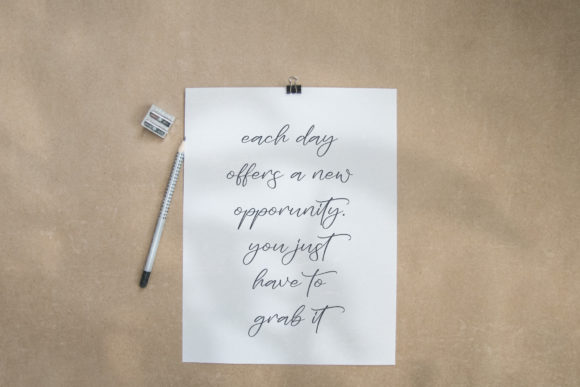 each day
offers a new
opporunity.
you just
have to
grab it